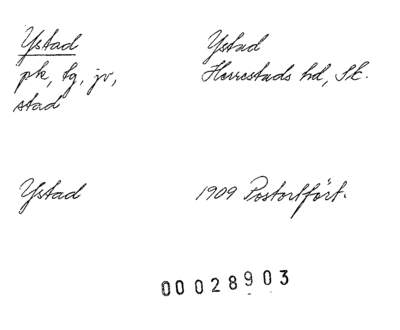 Ystad
pk, tg, jv,
stad
Ystad
Herrestads hd, Sk.
Ystad
1909 Postortfört.
00028903